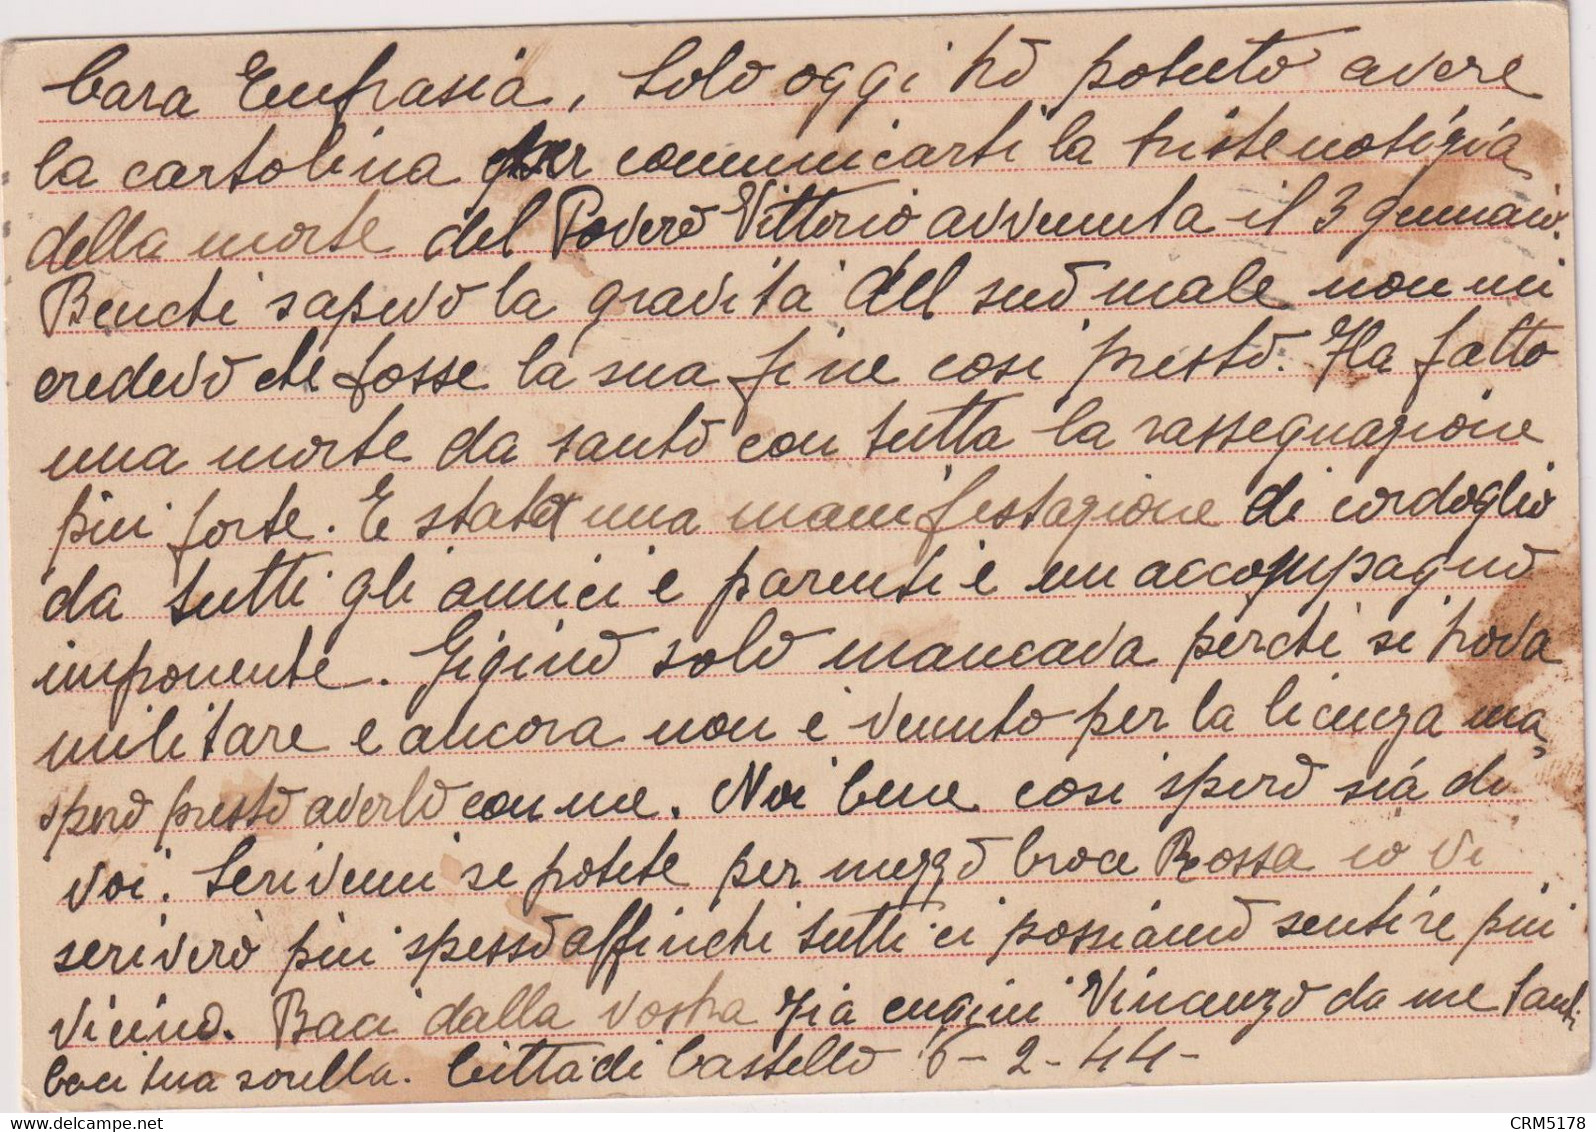 Cara Eufrasia, Solo oggi hò potuto avere
la cartolina per comunicarti la triste notizia
della morte del Povero Vittorio avvenuta il 3 gennaio.
Benchi sapevo la gravità del suo male non mi
credevo che fosse la sua fine cosi presto. Ha fatto
una morte da santo con tutta la rassegnazione
più forte. E stata una manifestazione di cordoglio
da tutti gli amici e parenti e un accompagno
imponente. Gigino solo mancava perchè si trova
militare e ancora non è venuto per la licenza ma
spero presto averlo con me. Noi bene cosi spero sia di
voi. Scrivemi se potete per mezzo Croce Rossa io vi
scriverò più spesso affinchi tutti ci possiamo sentire più
vicino. Baci dalla vostra Zia cugini Vincenzo da me tanti
baci tua sorella. Città di Castello 6-2-44-
CRM5178